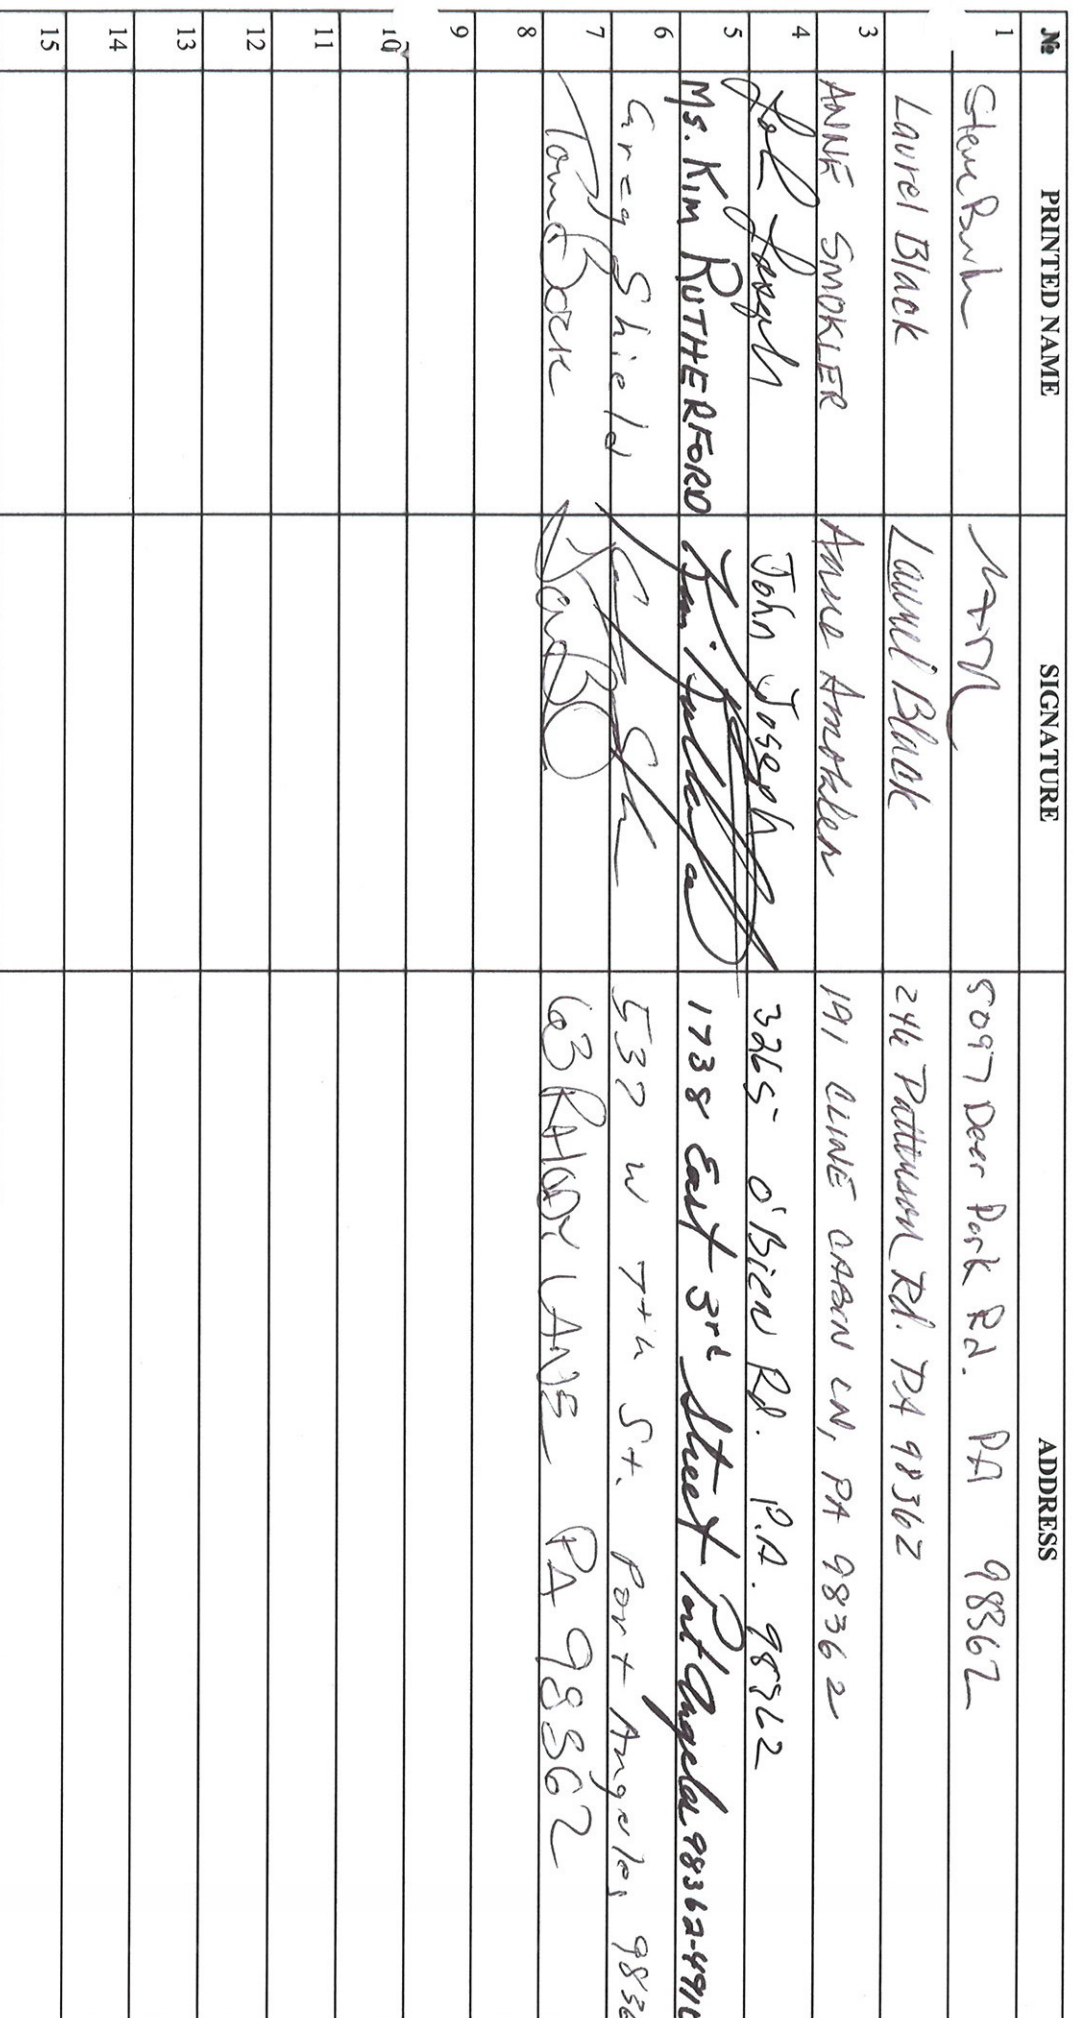 № PRINTED NAME SIGNATURE ADDRESS
1 Steve 5097 Deer Park Rd. PA 98362
Laurel Black Laurel Black 246 Pattinson Rd. PA 98362
3 ANNE SMOKLER Anne Smokler 191 CLINE CABIN LN, PA 98362
4 John Joseph 3265 O'Bien Rd. P.A. 98362
5 Ms. Kim RUTHERFORD Kim 1738 East 3rd Street Port Angeles 98362-4910
6 Greg Shield 532 W 7th St. Port Angeles 9836
7 63 LANE PA 98362
8
9
10
11
12
13
14
15